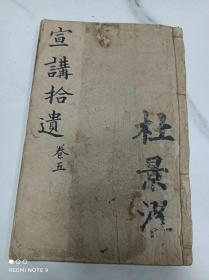 宣講拾遺
卷五
杜景
REDMI NOTE 9